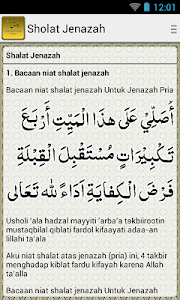 12:01
Sholat Jenazah
Shalat Jenazah
1. Bacaan niat shalat jenazah
Bacaan niat shalat jenazah Untuk Jenazah Pria
أُصَلِّيْ عَلَى هٰذَا الْمَيِّتِ أَرْبَعَ
تَكْبِيْرَاتٍ مُسْتَقْبِلَ الْقِبْلَةِ
فَرْضَ الْكِفَايَةِ اَدَاءً لِلّٰهِ تَعَالَى
Usholi 'ala hadzal mayyiti 'arba'a takbiirootin
mustaqbilal qiblati fardol kifayati adaa-an
lillahi ta'ala
Aku niat shalat atas jenazah (pria) ini, 4 takbir
menghadap kiblat fardu kifayah karena Allah
ta'alla
Bacaan niat shalat jenazah Untuk Jenazah